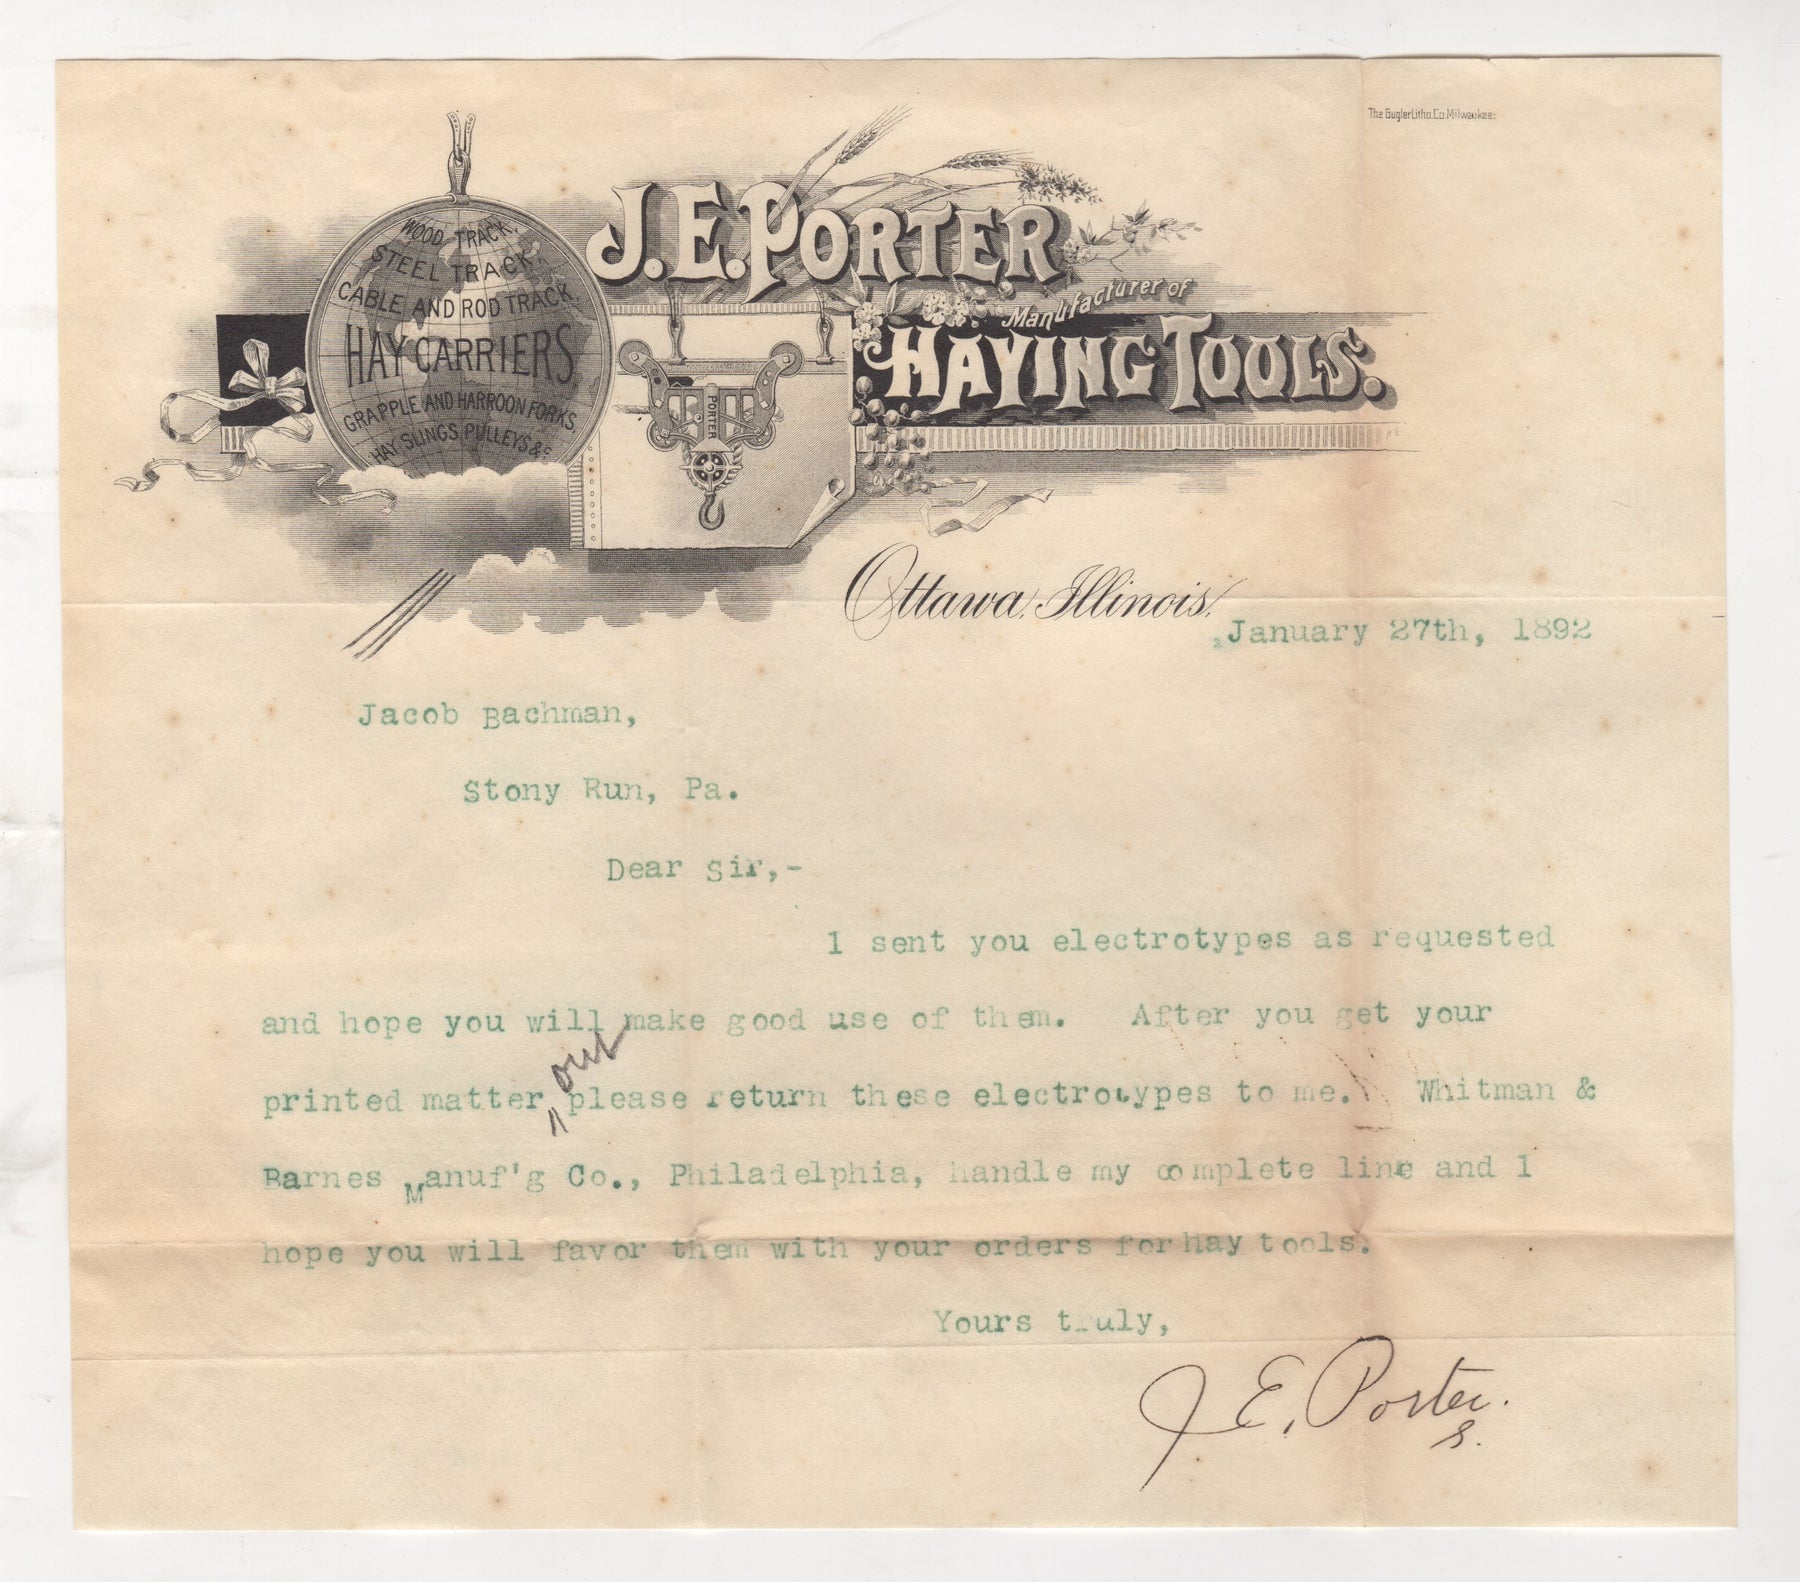 The Gugler Litho. Co. Milwaukee.
WOOD TRACK,
STEEL TRACK,
CABLE AND ROD TRACK,
HAY CARRIERS,
GRAPPLE AND HARPOON FORKS,
HAY SLINGS, PULLEYS &c
J.E. PORTER
Manufacturer of
HAYING TOOLS.
PORTER
Ottawa, Illinois.
January 27th, 1892
Jacob Bachman,
Stony Run, Pa.
Dear Sir,-
I sent you electrotypes as requested
and hope you will make good use of them. After you get your
printed matter out please return these electrotypes to me. Whitman &
Barnes Manuf'g Co., Philadelphia, handle my complete line and I
hope you will favor them with your orders for hay tools.
Yours truly,
J. E. Porter.
S.